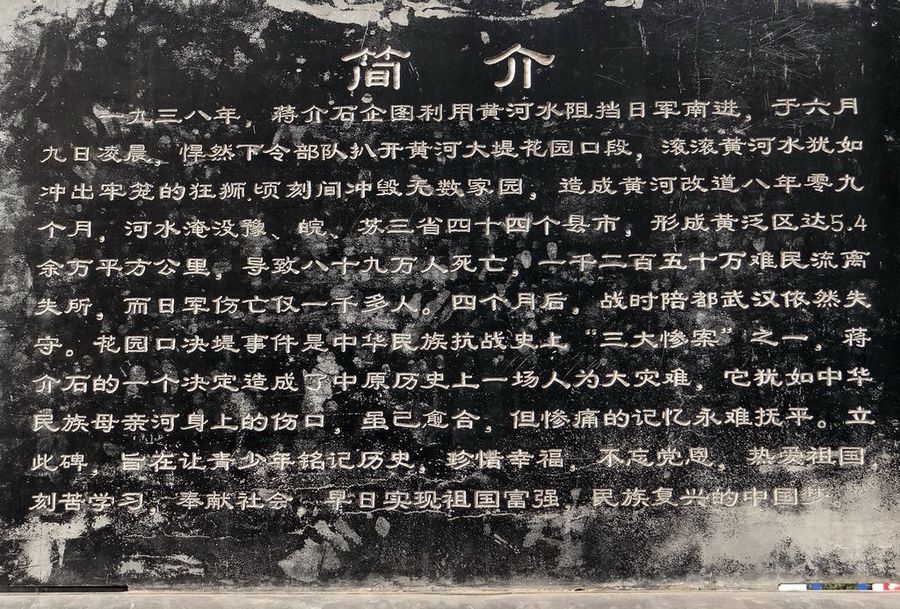 简介
一九三八年，蒋介石企图利用黄河水阻挡日军南进，于六月
九日凌晨，悍然下令部队扒开黄河大堤花园口段，滚滚黄河水犹如
冲出牢笼的狂狮.顷刻间冲毁无数家园，造成黄河改道八年零九
个月，河水淹没豫、皖、苏三省四十四个县市，形成黄泛区达5.4
余万平方公里，导致八十九万人死亡，一千二百五十万难民流离
失所，而日军伤亡仅一千多人。四个月后，战时陪都武汉依然失
守。花园口决堤事件是中华民族抗战史上“三大惨案”之一，蒋
介石的一个决定造成了中原历史上一场人为大灾难，它犹如中华
民族母亲河身上的伤口，虽已愈合，但惨痛的记忆永难抚平。立
此碑，旨在让青少年铭记历史，珍惜幸福，不忘党恩，热爱祖国，
刻苦学习，奉献社会，早日实现祖国富强，民族复兴的中国梦。